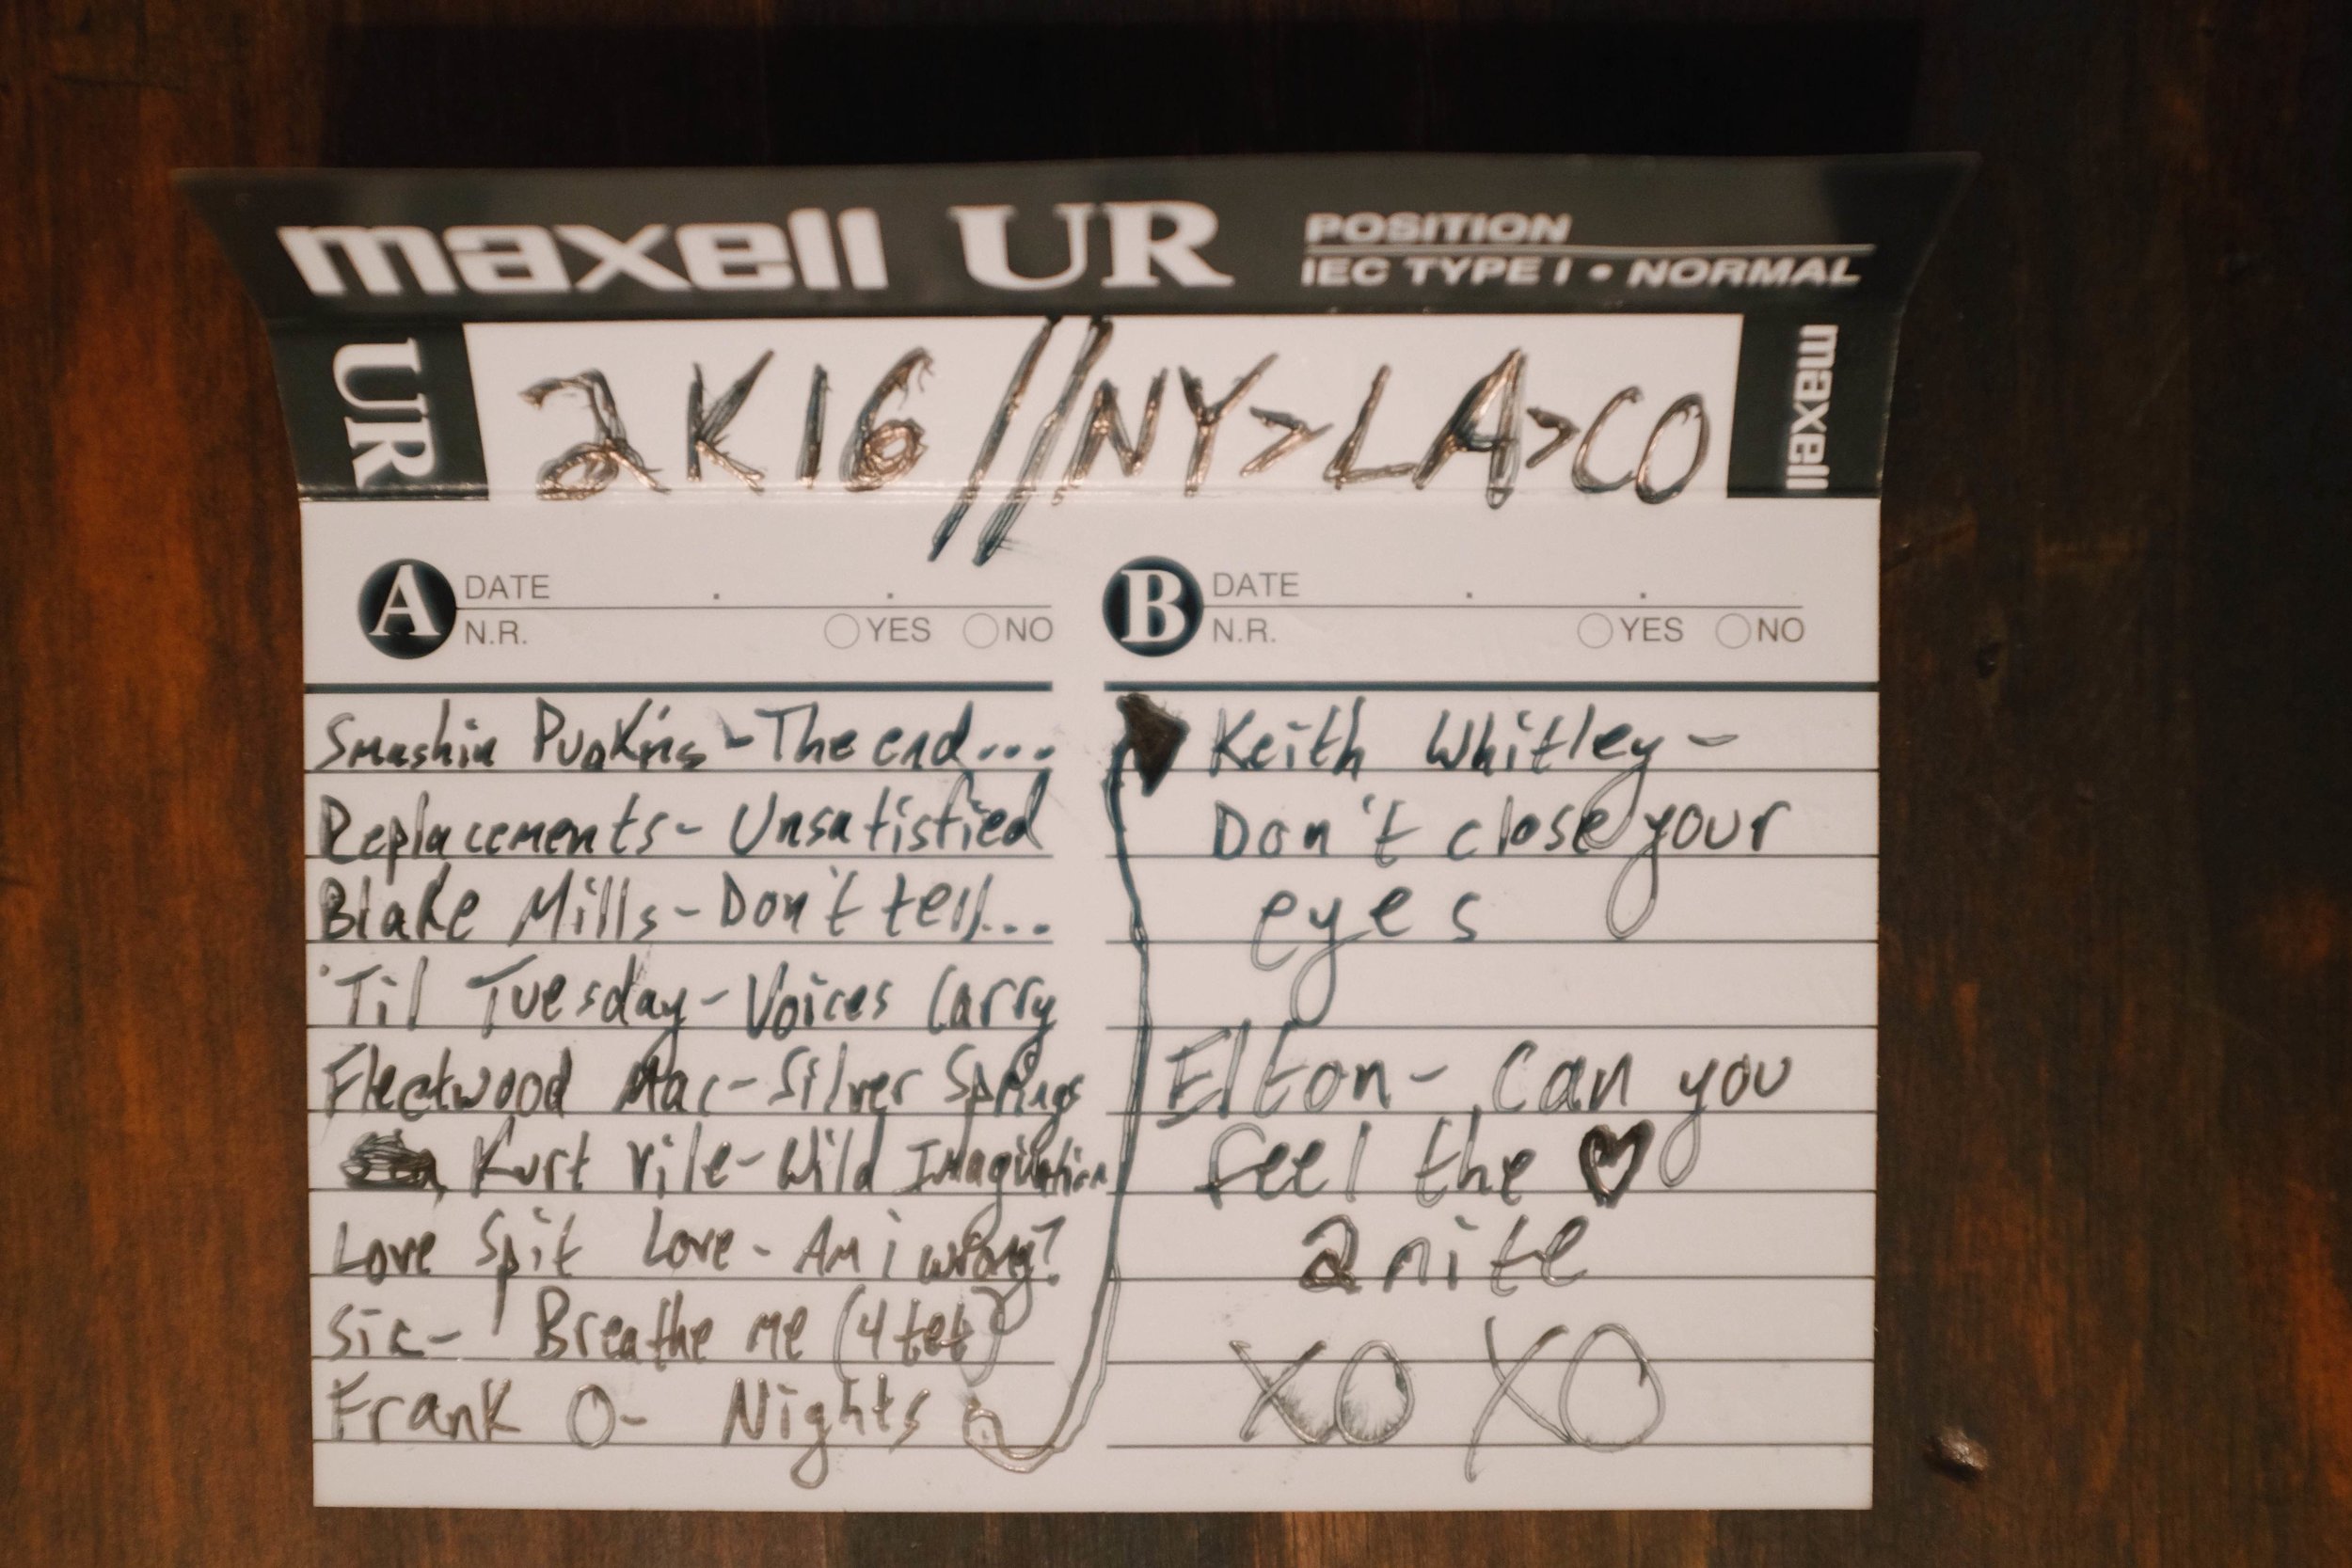 maxell UR POSITION
IEC TYPE I • NORMAL
UR 2K16 // NY>LA>CO maxell
A DATE . .
N.R. YES NO
Smashin Pupkins - The end...
Replacements - Unsatisfied
Blake Mills - Don't tell...
'Til Tuesday - Voices Carry
Fleetwood Mac - Silver Springs
Kurt Vile - Wild Imagination
Love Spit Love - Am i wrong?
Sia - Breathe me (4 tet)
Frank O - Nights
B DATE . .
N.R. YES NO
Keith Whitley -
Don't close your
eyes
Elton - Can you
feel the ♡
2nite
XO XO